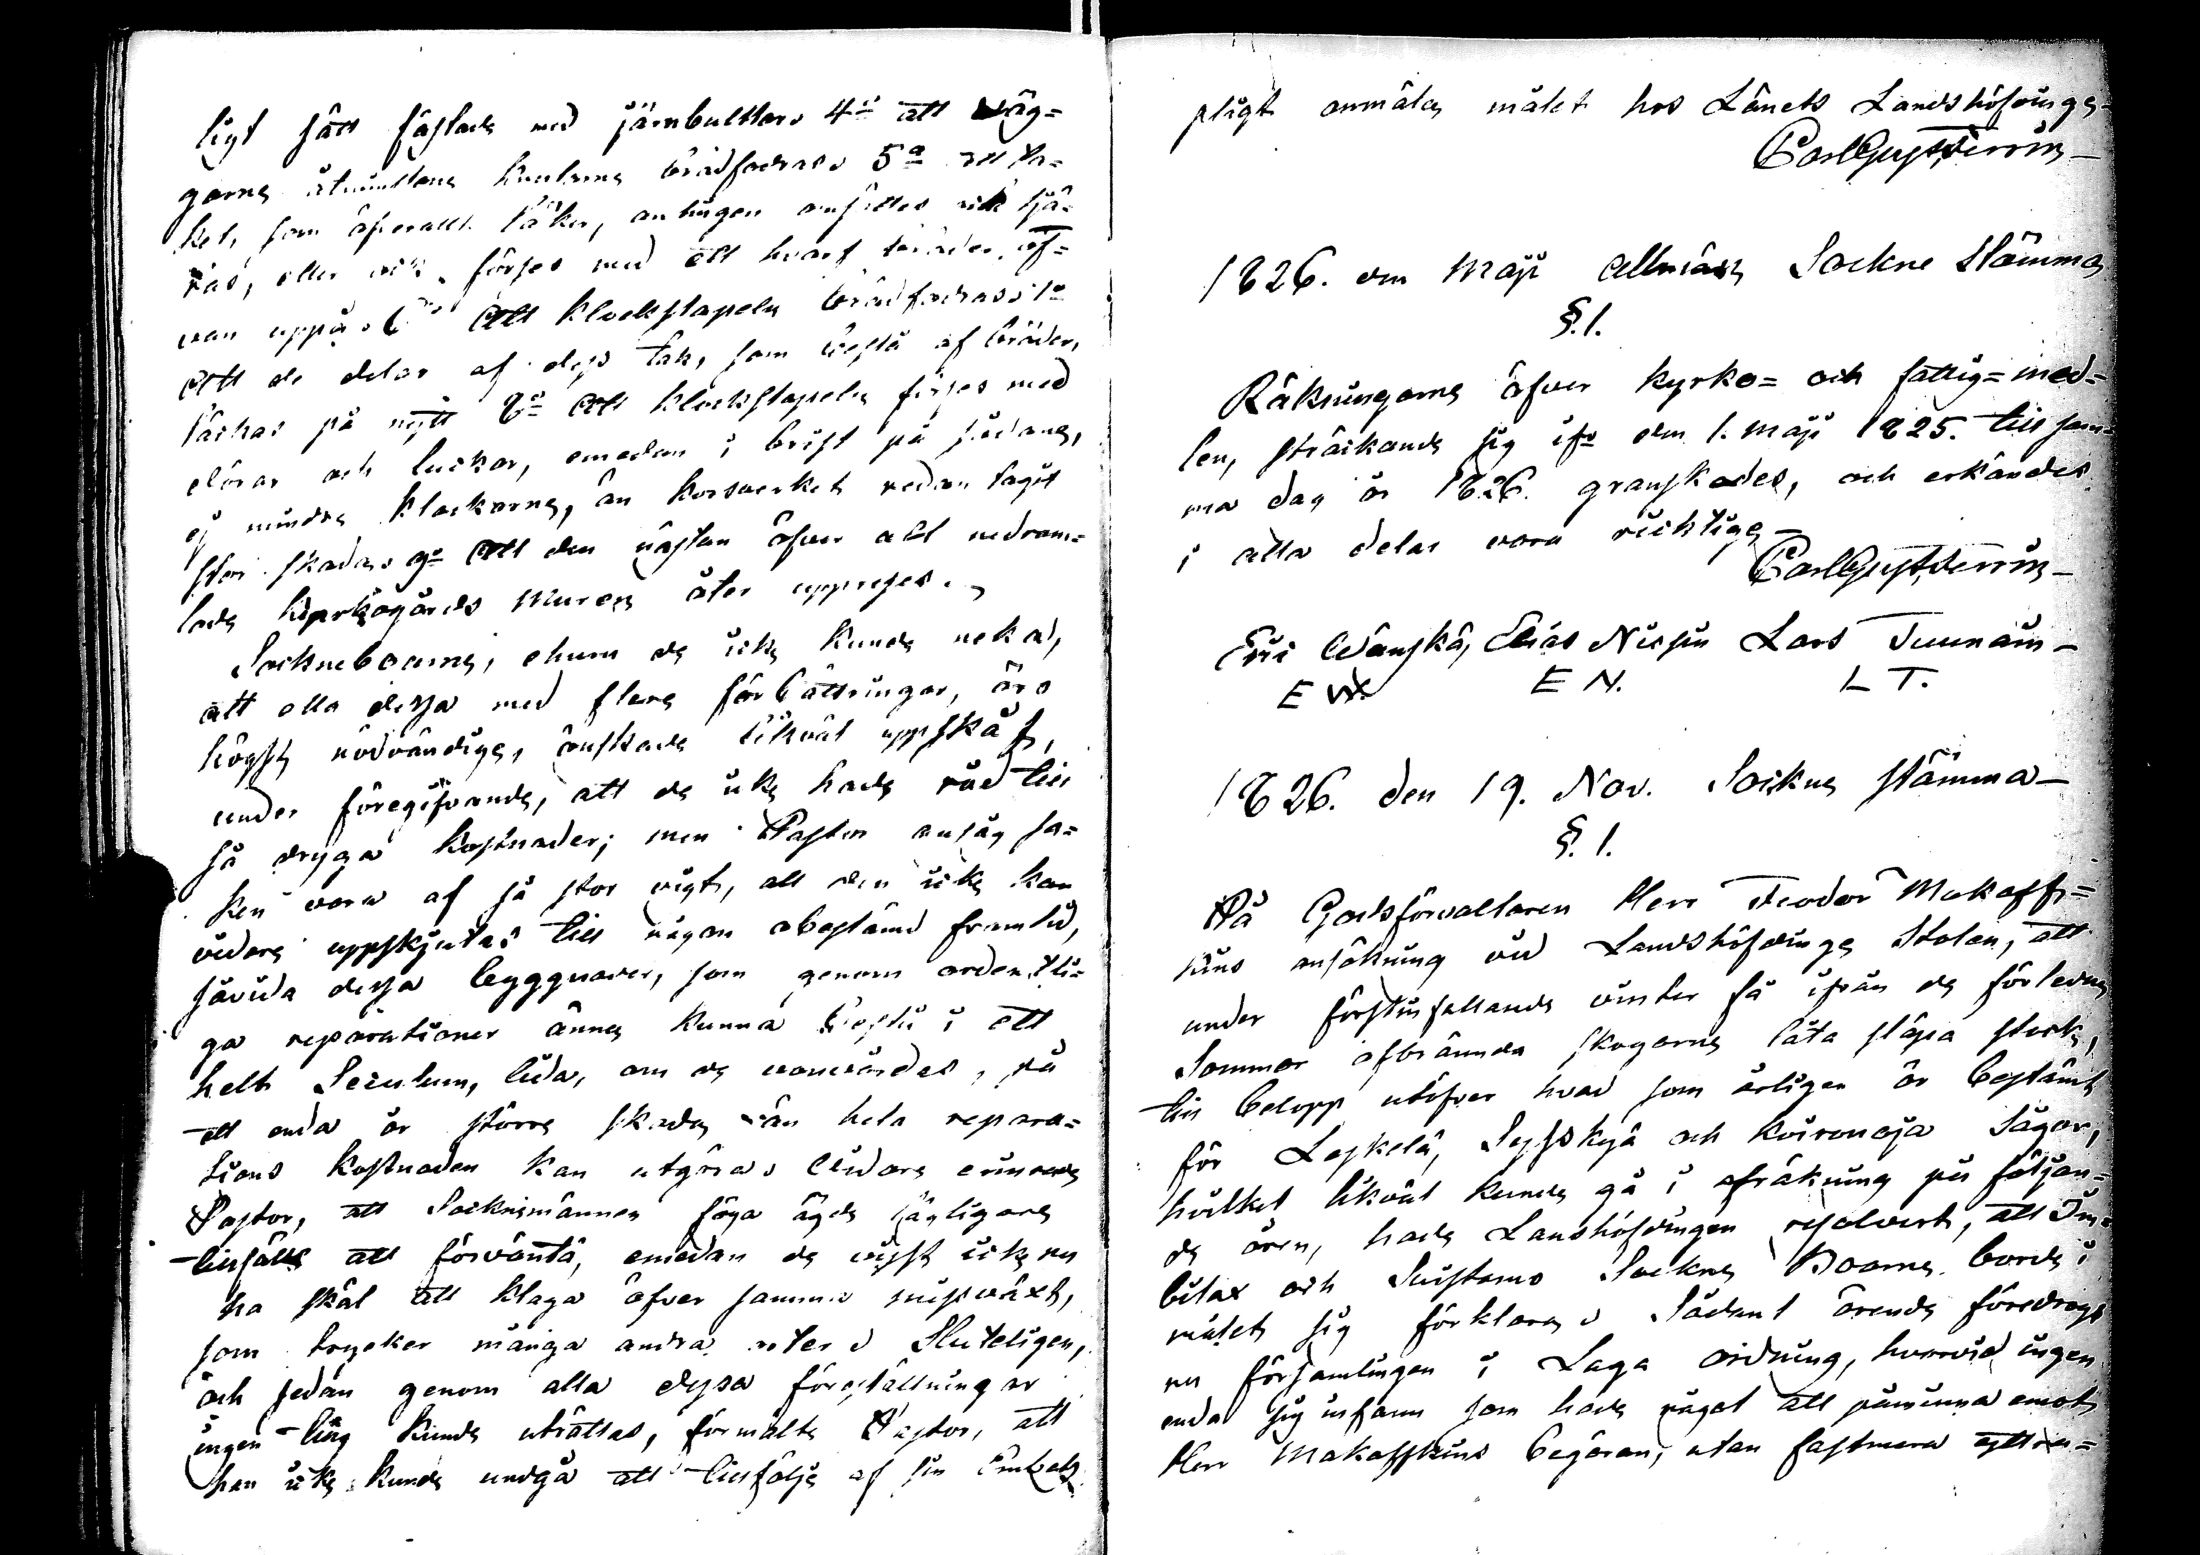 ligt sätt fästade med järnbultar. 4:o att väg=
garne utvändane knutarne brädfodras. 5:o att ta=
ket, som öfverallt läker, antingen anstrykes med tjä=
ras, eller och förses med ett hvarf bräder of=
van uppå. 6:o Att klockstapeln brädfodras. 7:o
Att de delar af dess tak, som bestå af bräder,
täckas på nytt 8:o Att klockstapeln förses med
dörar och luckor, emedan i brist på sådane,
ej mindre klockorne, än korsverket redan tagit
stor skada. 9:o Att den nästan öfver allt nedram=
lade kyrkogårds muren åter uppreses.
Sockneboerne, ehuru de icke kunde neka,
att alla dessa med flere förbättringar, äro
högst nödvändige, önskade likväl uppskåf,
under föregifvande, att de icke hade råd till
så dryga kostnader; men Pastor ansåg sa=
ken vara af så stor vigt, att den icke kan
vidare uppskjutas till någon obestämd framtid,
såvida dessa byggnader, som genom ordentli=
ga reparationer ännu kunna bestå i ett
helt Seculum, lida, om de vanvårdas, på
ett enda år större skada än hela repara=
tions kostnaden kan utgöra. Vidare erinrade
Pastor, att Socknemännen föga ägde lägligare
tillfälle att förvänta, emedan de visst icke nu
ha skäl att klaga öfver samma missväxt,
som trycker många andra orter. Sluteligen,
och sedan genom alla dessa föreställningar
ingen ting kunde uträttas, förmälte Pastor, att
han icke kunde undgå att tillfölje af sin Embets
pligt anmäla målet hos Länets Landshöfdinge
Carl Gust. Perrin
1826. om Maji Allmän Sockne Stämma
§. 1.
Räkningarne öfver kyrko= och fattig= med=
len, sträckande sig ifr. den 1. Maji 1825. till sam=
ma dag år 1826. granskades, och erkändes
i alla delar vara richtige
Carl Gust. Perrin
Eric Wänskä, Elias Nissin Lars Tuunain
E W. E N. L T.
1826. den 19. Nov. Sockne stämma
§. 1.
På Godsförvaltaren Herr Feodor Makaffs=
kins ansökning vid Landshöfdinge Stolen, att
under förstinfallande vinter få ifrån de förledne
Sommar afbrända skogarne låta släpa stock,
till belopp utöfver hvad som årligen är bestämt
för Leskelä, Syskyä och Koironoja Sågar,
hvilket likväl kunde gå i afräkning på följan=
de åren, hade Landshöfdingen resolverat, att Im=
bilax och Suistamo Sockne Boarne borde i
målet sig förklara. Sådant ärende föredrogs
nu församlingen i Laga ordning, hvarvid ingen
enda sig infann som hade något att påminna emot
Herr Makaffskins begäran, utan fastmera yttra=